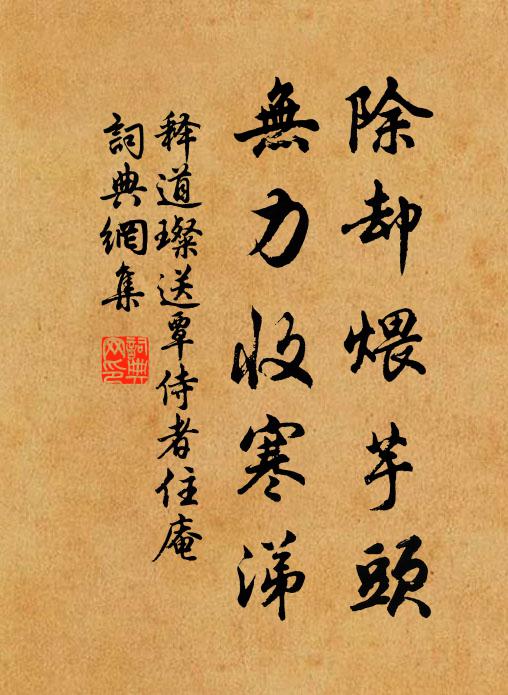 除却煨芋頭
無力收寒涕
释道璨送覃侍者住庵
詞典網集
詞典网印